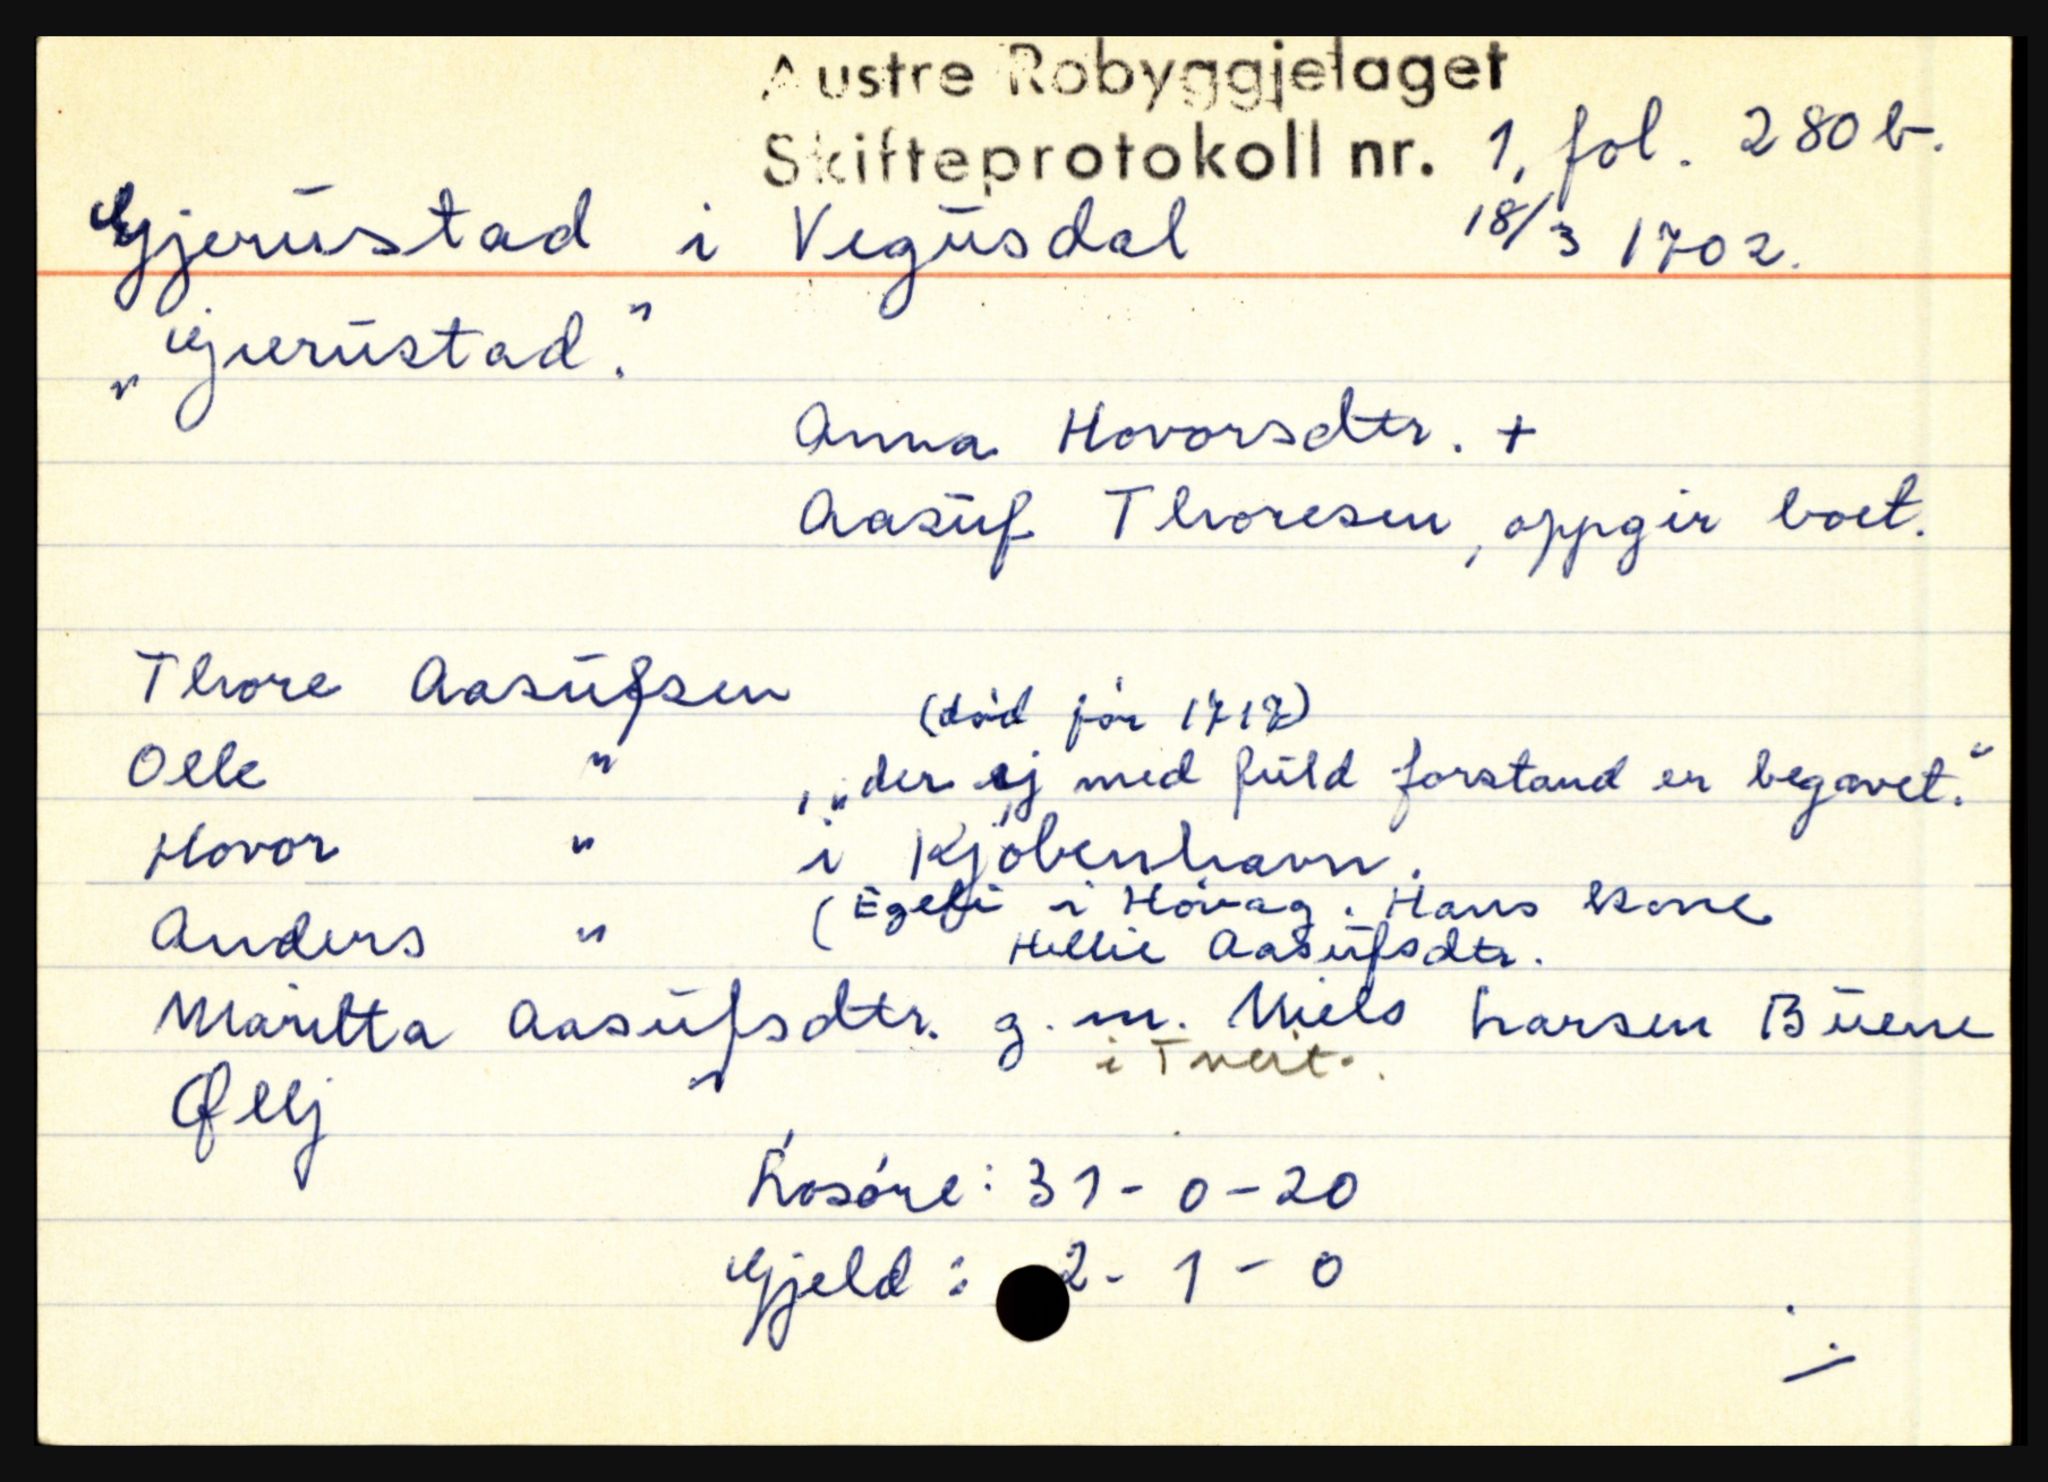 Austre Robyggjelaget
Skifteprotokoll nr. 1, fol. 280 b.
Gjerustad i Vegusdal 18/3 1702.
„Gjuerustad."
Anna Hovorsdtr. +
Aasuf Thoresen, oppgir boet.
Thore Aasufsen
(død før 1717)
Olle " , „der ej med fuld forstand er begavet."
Hovor " i Kjøbenhavn.
Anders " (Egeli i Høvåg. Hans kone
Hellie Aasufsdtr.
Maritta Aasufsdtr. g. m. Niels Larsen Buene
i Tveit.
Øllj "
Løsøre: 31-0-20
Gjeld: 2-1-0